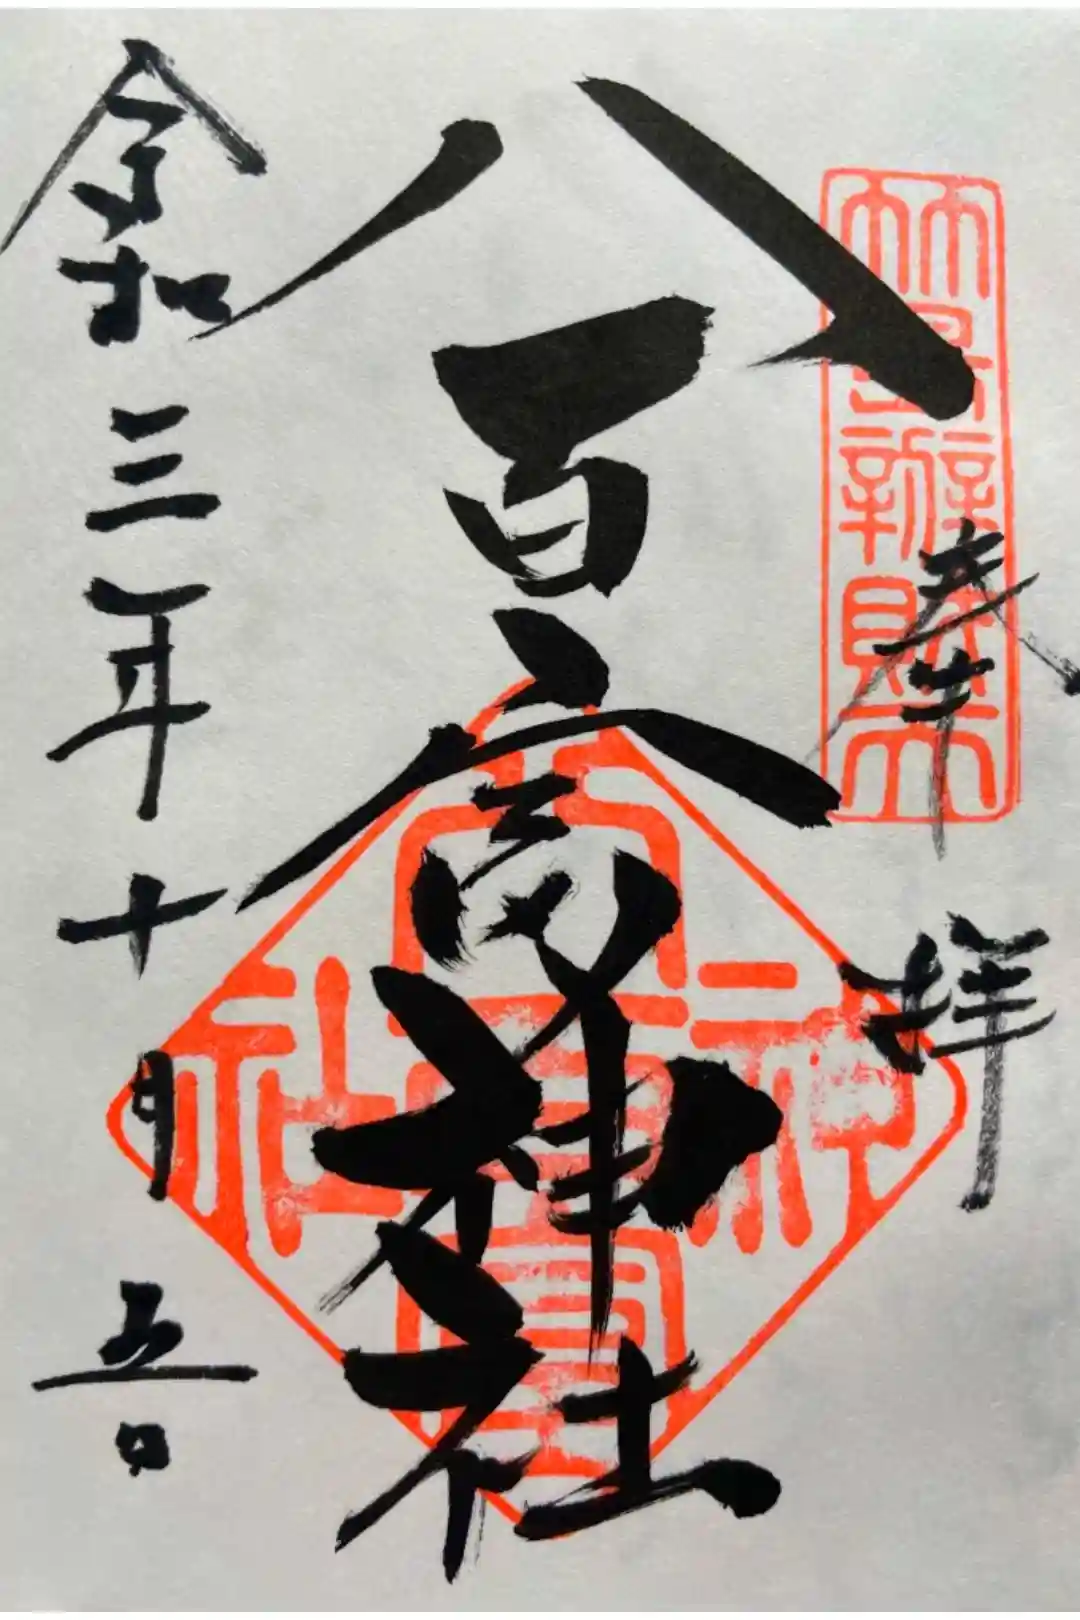 竹島辨財天
奉拝
八百富神社
八百富神社
令和三年十月五日